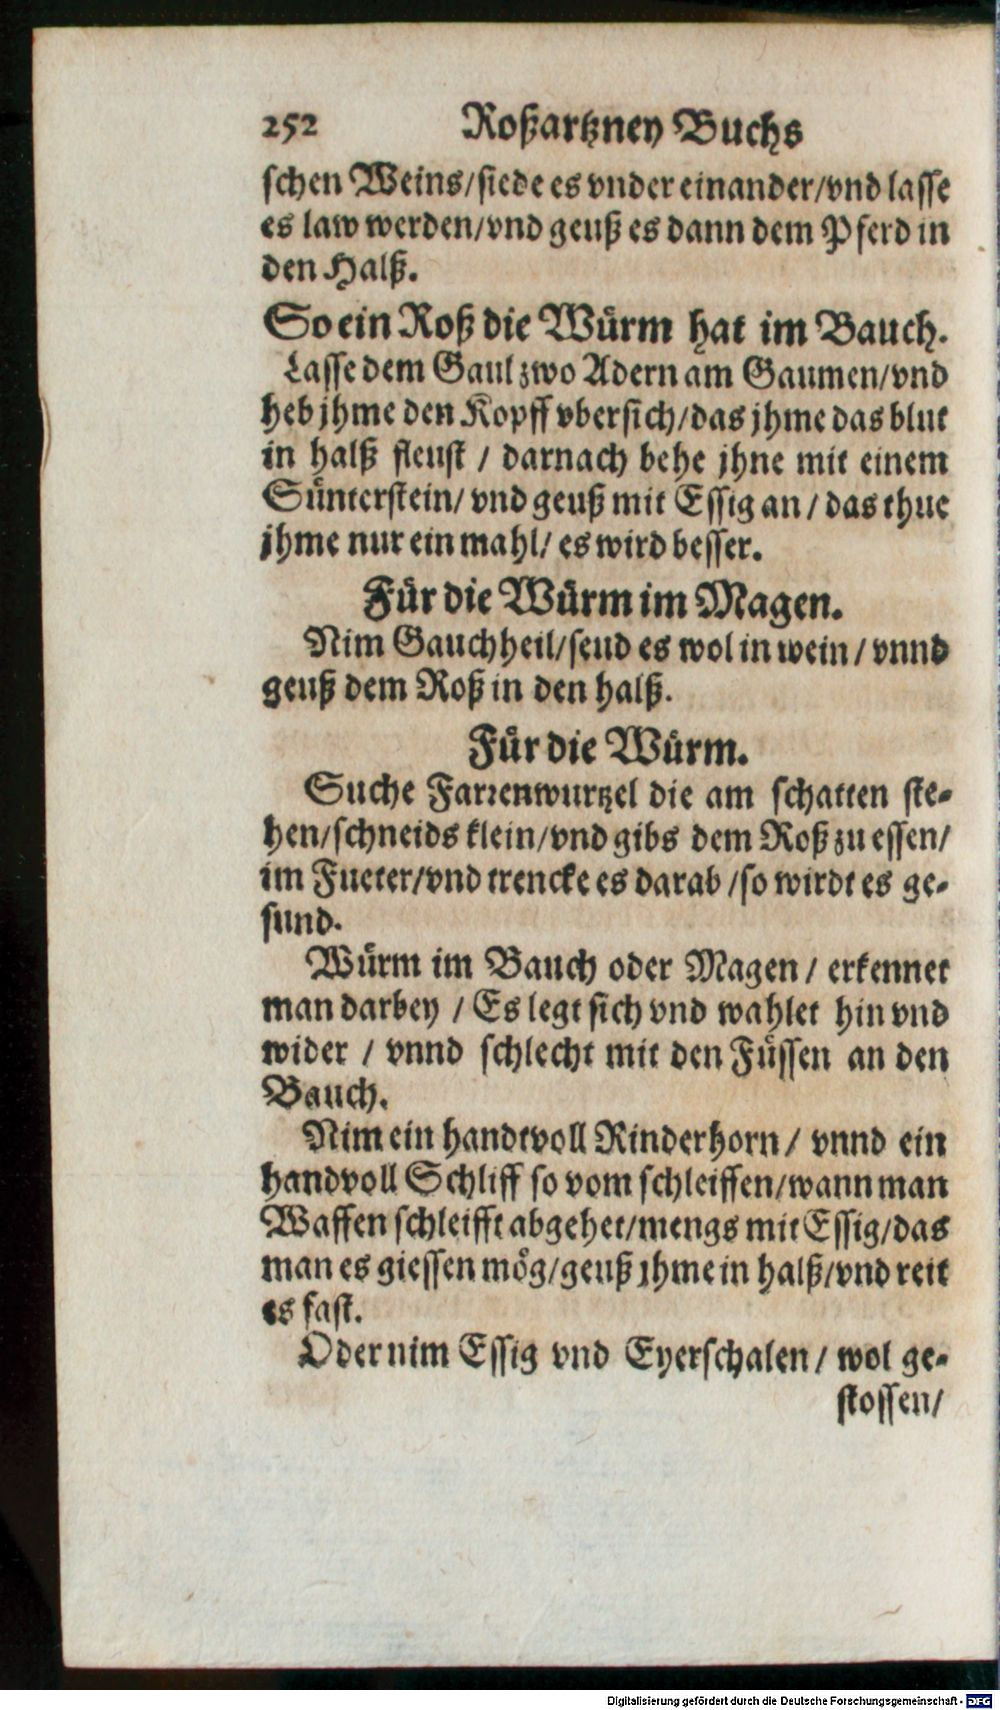 252 Roßartzney Buchs
schen Weins/siede es vnder einander/vnd lasse
es law werden/vnd geuß es dann dem Pferd in
den Halß.
So ein Roß die Würm hat im Bauch.
Lasse dem Gaul zwo Adern am Gaumen/vnd
heb jhme den Kopff vbersich/das jhme das blut
in halß fleust / darnach behe jhne mit einem
Sünterstein/ vnd geuß mit Essig an / das thue
jhme nur ein mahl/ es wird besser.
Für die Würm im Magen.
Nim Gauchheil/seud es wol in wein / vnnd
geuß dem Roß in den halß.
Für die Würm.
Suche Farrenwurtzel die am schatten ste-
hen/schneids klein/vnd gibs dem Roß zu essen/
im Fueter/vnd trencke es darab /so wirdt es ge-
sund.
Würm im Bauch oder Magen / erkennet
man darbey / Es legt sich vnd wahlet hin vnd
wider / vnnd schlecht mit den Füssen an den
Bauch.
Nim ein handtvoll Rinderhorn / vnnd ein
handvoll Schliff so vom schleiffen/wann man
Waffen schleifft abgehet/mengs mit Essig/das
man es giessen mög/geuß jhme in halß/vnd reit
es fast.
Oder nim Essig vnd Eyerschalen / wol ge-
stossen/
Digitalisierung gefördert durch die Deutsche Forschungsgemeinschaft - DFG